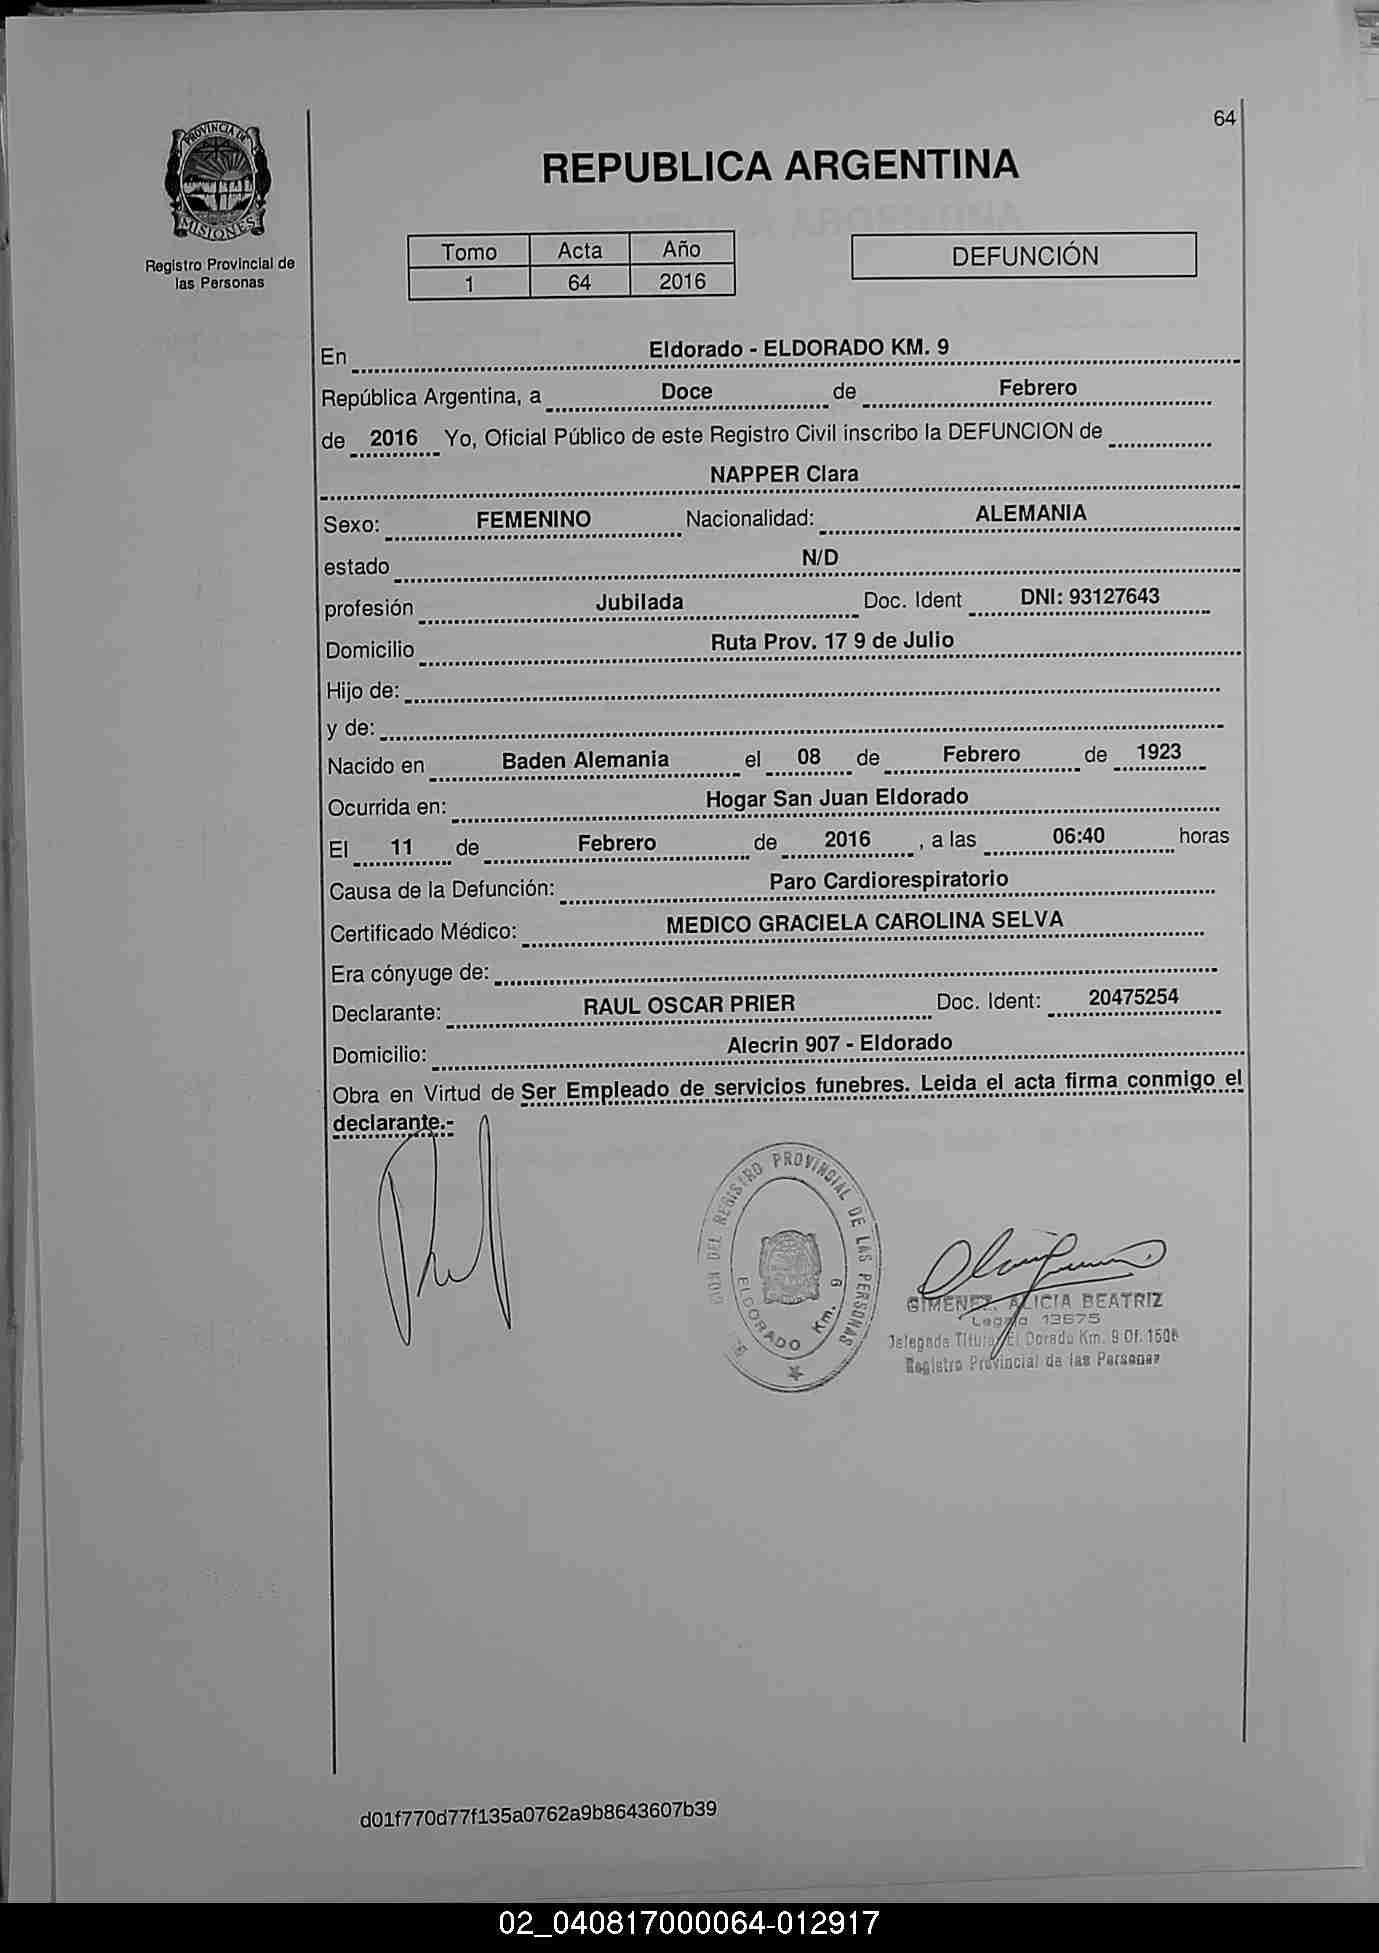 64
PROVINCIA DE
MISIONES
Registro Provincial de
las Personas
REPUBLICA ARGENTINA
Tomo Acta Año
1 64 2016
DEFUNCIÓN
En Eldorado - ELDORADO KM. 9
República Argentina, a Doce de Febrero
de 2016 Yo, Oficial Público de este Registro Civil inscribo la DEFUNCION de
NAPPER Clara
Sexo: FEMENINO Nacionalidad: ALEMANIA
estado N/D
profesión Jubilada Doc. Ident DNI: 93127643
Domicilio Ruta Prov. 17 9 de Julio
Hijo de:
y de:
Nacido en Baden Alemania el 08 de Febrero de 1923
Ocurrida en: Hogar San Juan Eldorado
El 11 de Febrero de 2016 , a las 06:40 horas
Causa de la Defunción: Paro Cardiorespiratorio
Certificado Médico: MEDICO GRACIELA CAROLINA SELVA
Era cónyuge de:
Declarante: RAUL OSCAR PRIER Doc. Ident: 20475254
Domicilio: Alecrin 907 - Eldorado
Obra en Virtud de Ser Empleado de servicios funebres. Leida el acta firma conmigo el
declarante.-
DEL REGISTRO PROVINCIAL DE LAS PERSONAS
ELDORADO Km. 9
GIMENEZ, ALICIA BEATRIZ
13675
Delegada Titular El Dorado Km. 9 Of. 1506
Registro Provincial de las Personas
d01f770d77f135a0762a9b8643607b39
02_040817000064-012917